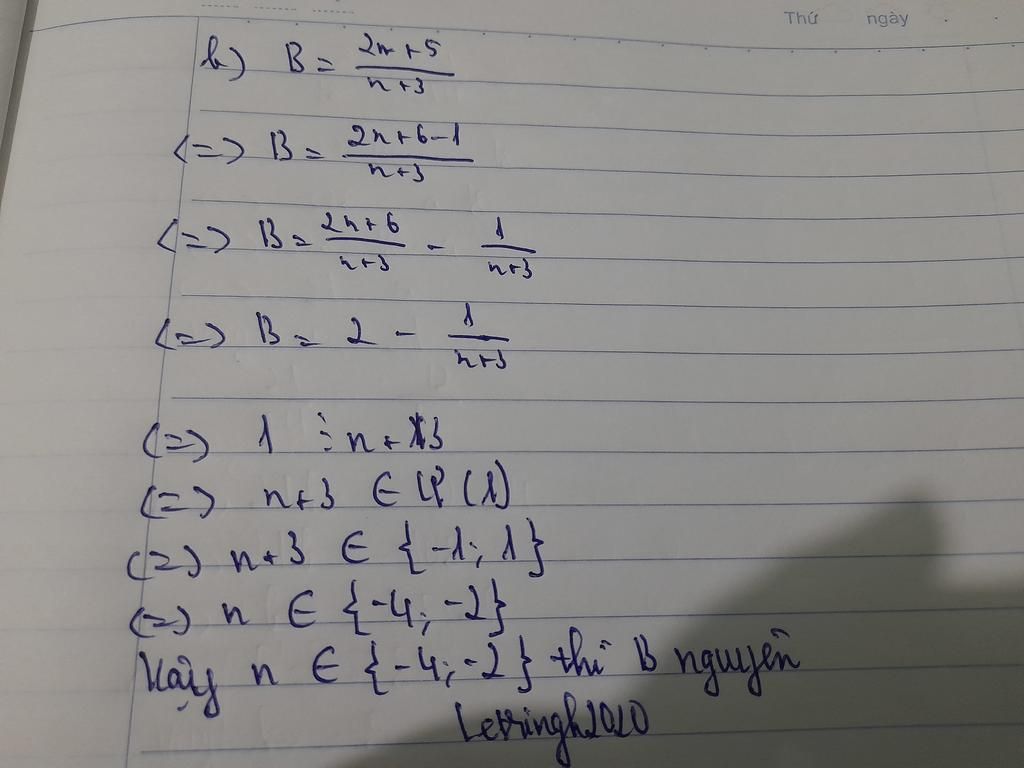 Thứ ngày
b) B = \frac{2n+5}{n+3}
<=> B = \frac{2n+6-1}{n+3}
<=> B = \frac{2n+6}{n+3} - \frac{1}{n+3}
<=> B = 2 - \frac{1}{n+3}
<=> 1 ⋮ n+3
<=> n+3 ∈ Ư(1)
<=> n+3 ∈ {-1; 1}
<=> n ∈ {-4; -2}
Vậy n ∈ {-4; -2} thì B nguyên